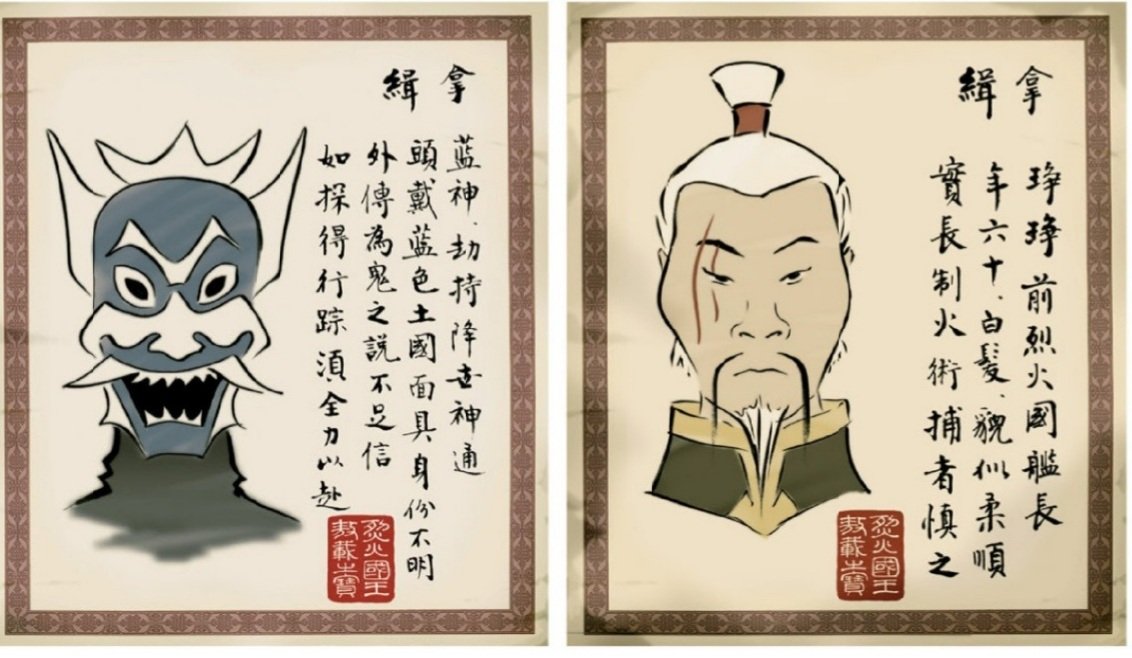 緝拿
蓝神.劫持降世神通
頭戴蓝色土國面具身份不明
外傳為鬼之說不足信
如探得行踪須全力以赴
烈火國王
敖載之寶
緝拿
琤琤前烈火國艦長
年六十.白髮.貌似柔順
實長制火術捕者慎之
烈火國王
敖載之寶